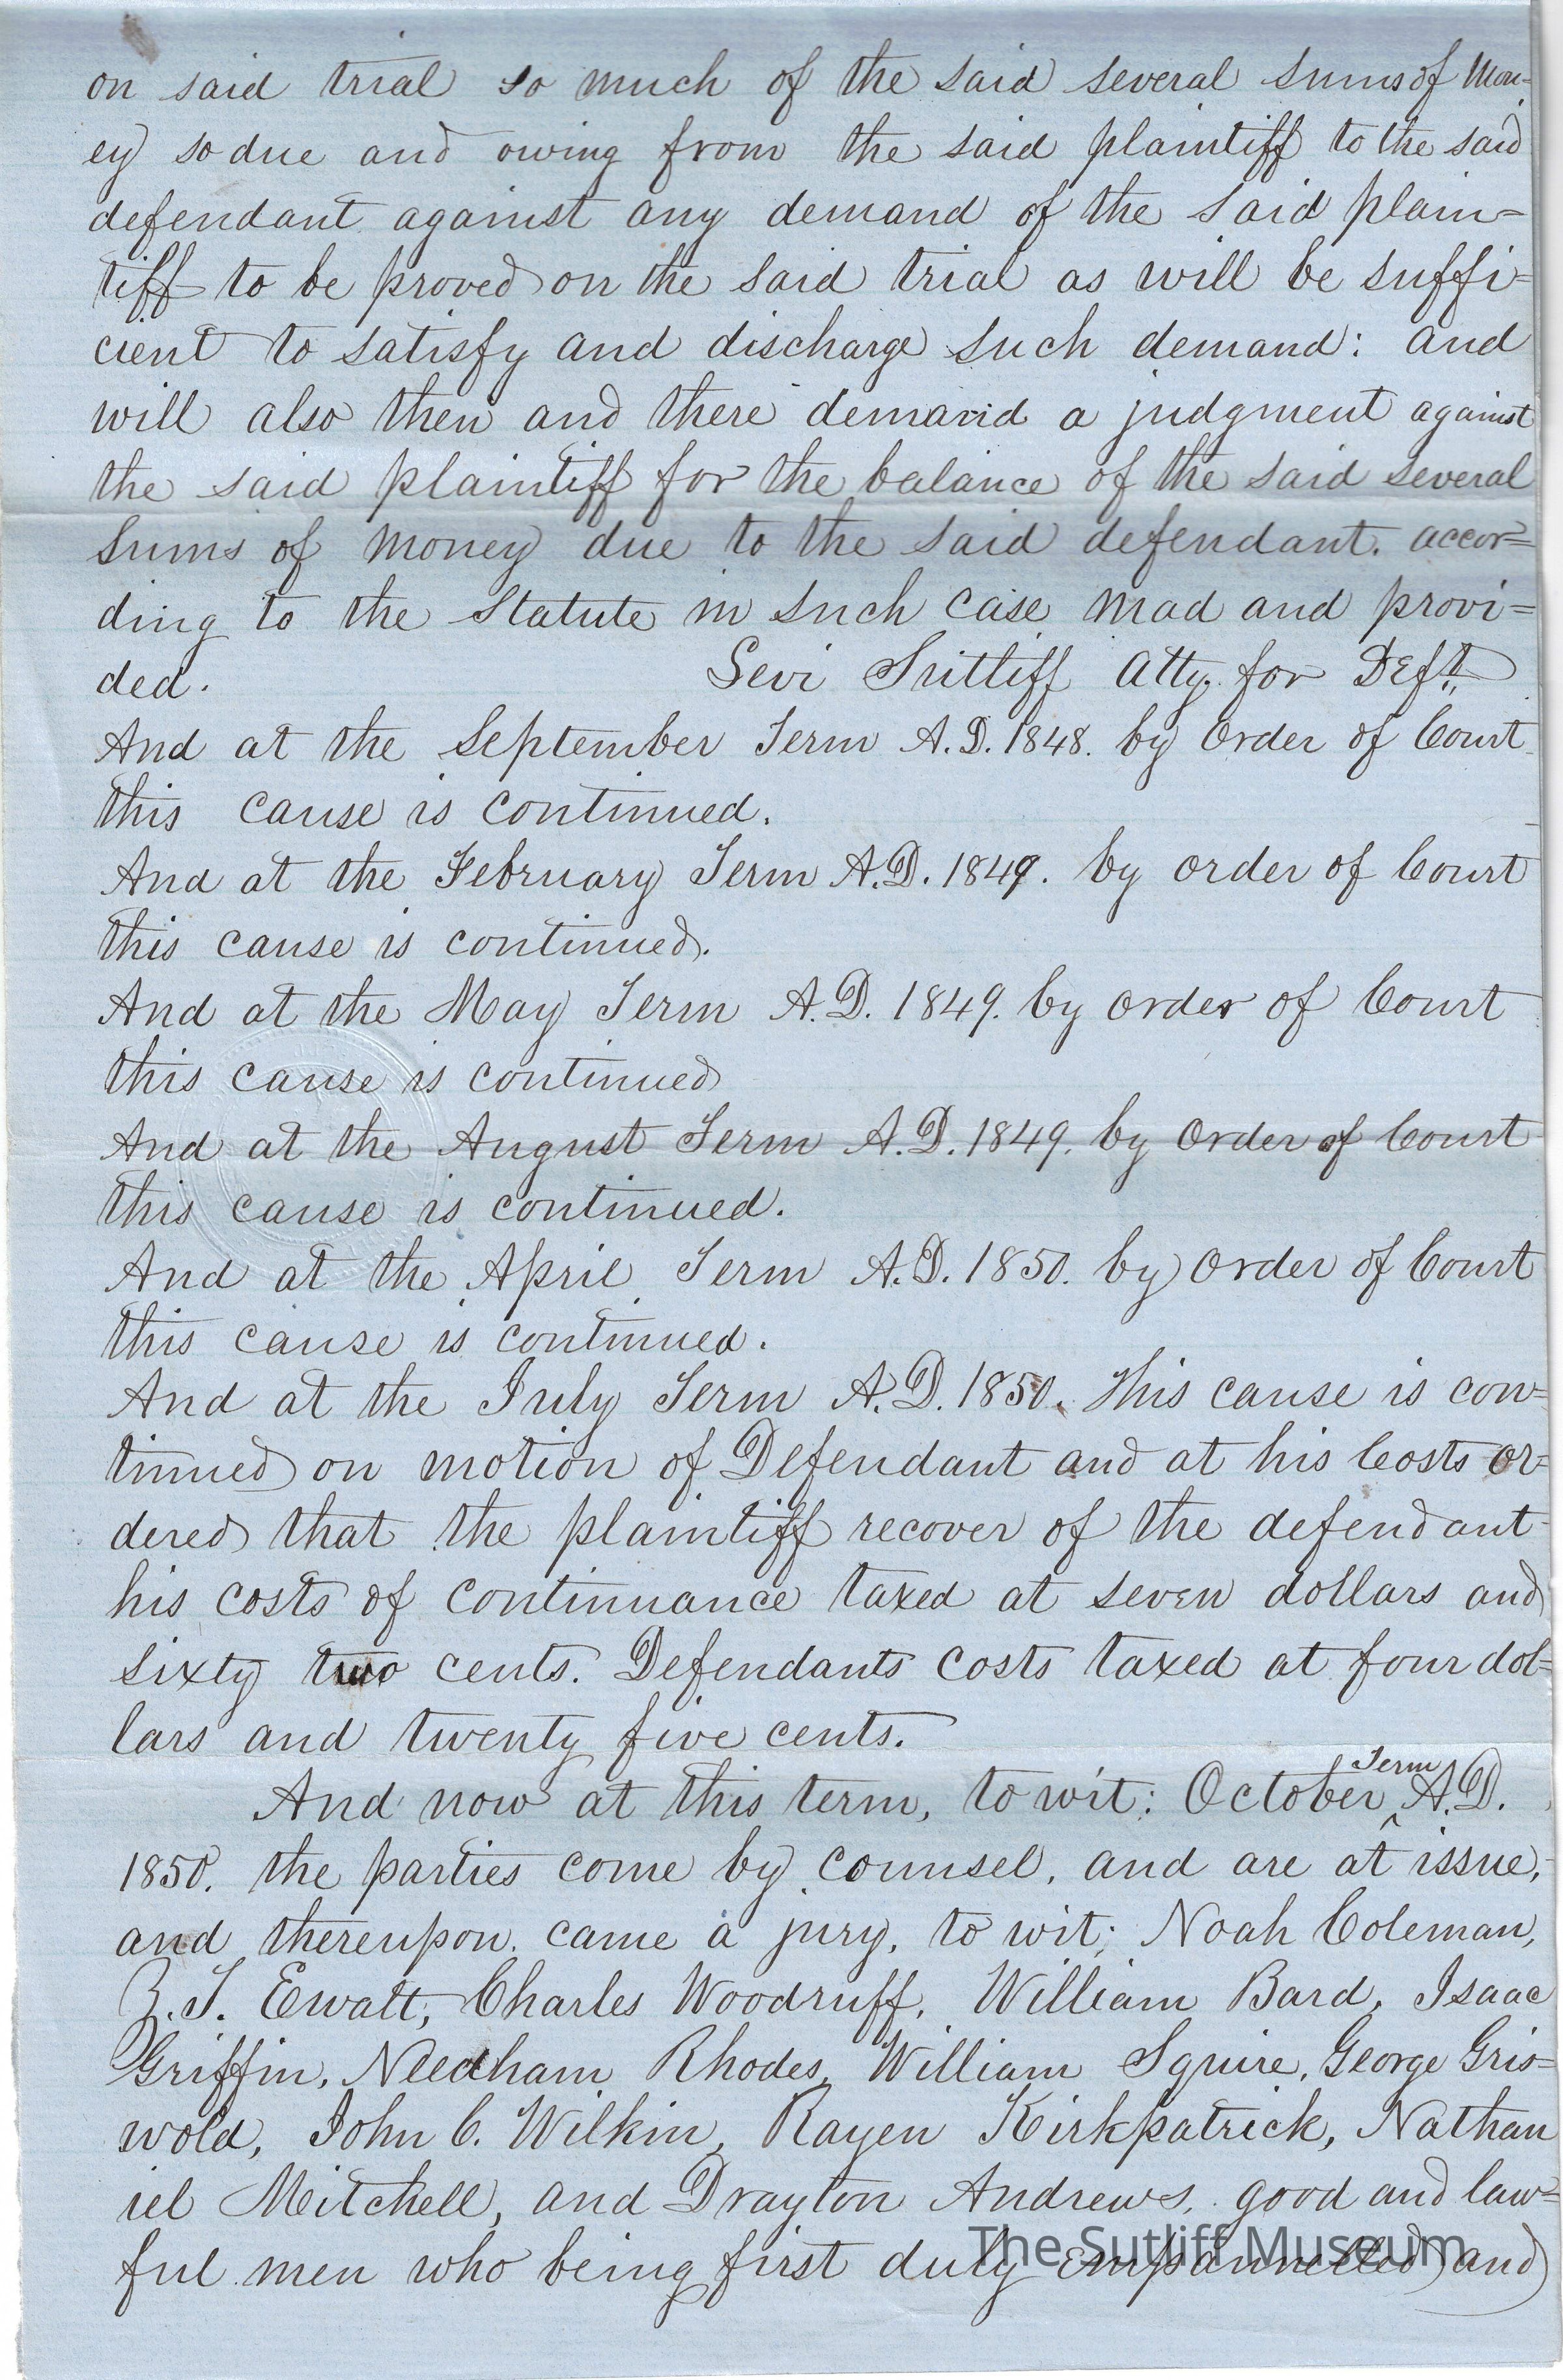 on said trial so much of the said several sums of Mon-
ey so due and owing from the said plaintiff to the said
defendant against any demand of the said plain=
tiff to be proved on the said trial as will be suffi=
cient to satisfy and discharge such demand: and
will also then and there demand a judgment against
the said plaintiff for the balance of the said several
sums of money due to the said defendant. accor=
ding to the Statute in such case mad and provi=
ded. Levi Sutliff Atty. for Deft.
And at the September Term A.D. 1848. by Order of Court
this cause is continued.
And at the February Term A.D. 1849. by order of Court
this cause is continued.
And at the May Term A.D. 1849. by order of Court
this cause is continued
And at the August Term A.D. 1849. by Order of Court
this cause is continued.
And at the April Term A.D. 1850. by Order of Court
this cause is continued.
And at the July Term A.D. 1850. This cause is con=
tinued on motion of Defendant and at his Costs or=
dered that the plaintiff recover of the defendant
his costs of continuance taxed at seven dollars and
sixty two cents. Defendants costs taxed at four dol=
lars and twenty five cents.
And now at this term, to wit: October Term A.D.
1850. the parties come by counsel, and are at issue,
and thereupon came a jury, to wit; Noah Coleman,
Z. T. Ewalt, Charles Woodruff, William Bard, Isaac
Griffin, Needham Rhodes, William Squire, George Gris=
wold, John C. Wilkin, Rayen Kirkpatrick, Nathan
iel Mitchell, and Drayton Andrews, good and law=
ful men who being first duly empannelled and
The Sutliff Museum